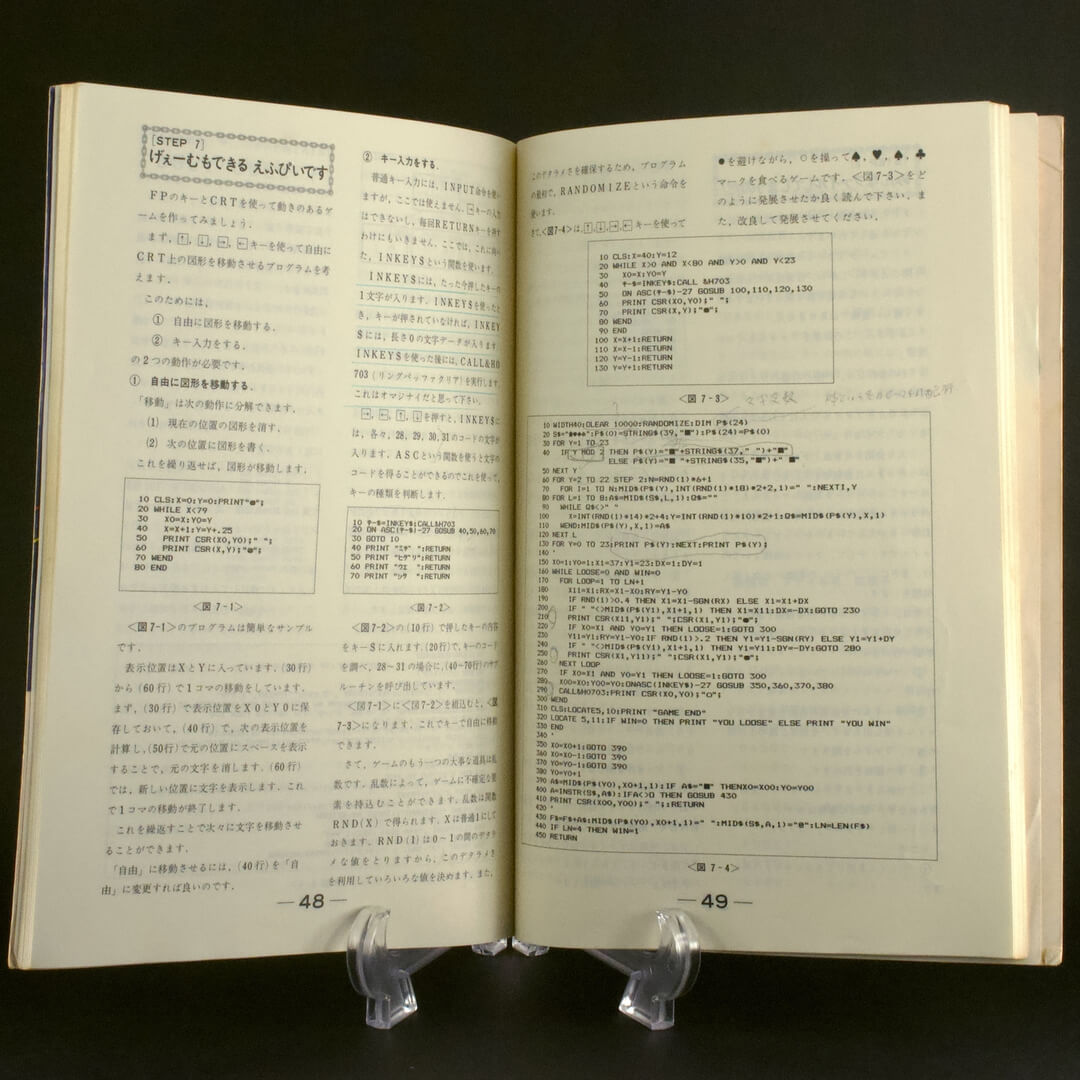 [STEP 7]
げぇーむもできる えふぴいです
FPのキーとCRTを使って動きのあるゲ
ームを作ってみましょう．
まず，↑，↓，→，←キーを使って自由に
CRT上の図形を移動させるプログラムを考
えます．
このためには，
① 自由に図形を移動する．
② キー入力をする．
の2つの動作が必要です．
① 自由に図形を移動する．
「移動」は次の動作に分解できます．
(1) 現在の位置の図形を消す．
(2) 次の位置に図形を書く．
これを繰り返せば，図形が移動します．
10 CLS:X=0:Y=0:PRINT"●";
20 WHILE X<79
30 X0=X:Y0=Y
40 X=X+1:Y=Y+.25
50 PRINT CSR(X0,Y0);" ";
60 PRINT CSR(X,Y);"●";
70 WEND
80 END
＜図 7-1＞
＜図7-1＞のプログラムは簡単なサンプル
です．
表示位置はXとYに入っています．(30行)
から(60行)で1コマの移動をしています．
まず，(30行)で表示位置をX0とY0に保
存しておいて，(40行)で，次の表示位置を
計算し，(50行)で元の位置にスペースを表示
することで，元の文字を消します．(60行)
では，新しい位置に文字を表示します．これ
で1コマの移動が終了します．
これを繰返すことで次々に文字を移動させ
ることができます．
「自由」に移動させるには，(40行)を「自
由」に変更すれば良いのです．
② キー入力をする．
普通キー入力には，INPUT命令を使い
ますが，ここでは使えません．→キーの入力
はできないし，毎回RETURNキーを押す
わけにもいきません．ここでは，これに向い
た，INKEY$という関数を使います．
INKEY$には，たった今押したキーの
1文字が入ります．INKEY$を使ったと
き，キーが押されていなければ，INKEY
$には，長さ0の文字データが入ります．
INKEY$を使った後には，CALL&H0
703（リングベッファクリア）を実行します．
これはオマジナイだと思って下さい．
→，←，↑，↓を押すと，INKEY$に
は，各々，28，29，30，31のコードの文字が
入ります．ASCという関数を使うと文字の
コードを得ることができるのでこれを使って，
キーの種類を判断します．
10 キ-$=INKEY$:CALL&H0703
20 ON ASC(キ-$)-27 GOSUB 40,50,60,70
30 GOTO 10
40 PRINT "ミギ ":RETURN
50 PRINT "ヒダリ":RETURN
60 PRINT "ウエ ":RETURN
70 PRINT "シタ ":RETURN
＜図 7-2＞
＜図7-2＞の(10行)で押したキーの内容
をキー$に入れます．(20行)で，キーのコード
を調べ，28～31の場合に，(40～70行)のサブ
ルーチンを呼び出しています．
＜図7-1＞に＜図7-2＞を組込むと，＜図
7-3＞になります．これでキーで自由に移動
できます．
さて，ゲームのもう一つの大事な道具は乱
数です．乱数によって，ゲームに不確定な要
素を持込むことができます．乱数は関数
RND(X)で得られます．Xは普通1にして
おきます．RND(1)は0～1の間のデタラ
メな値をとりますから，このデタラメさ
を利用していろいろな値を決めます．また，
―48―
このデタラメさを確保するため，プログラム
の最初で，RANDOMIZEという命令を
使います．
さて，＜図7-4＞は，↑，↓，→，←キーを使って
●を避けながら，○を操って♠，♥，♠，♣
マークを食べるゲームです．＜図7-3＞をど
のように発展させたか良く読んで下さい．ま
た，改良して発展させてください．
10 CLS:X=40:Y=12
20 WHILE X>0 AND X<80 AND Y>0 AND Y<23
30 X0=X:Y0=Y
40 キ-$=INKEY$:CALL &H703
50 ON ASC(キ-$)-27 GOSUB 100,110,120,130
60 PRINT CSR(X0,Y0);" ";
70 PRINT CSR(X,Y);"●";
80 WEND
90 END
100 X=X+1:RETURN
110 X=X-1:RETURN
120 Y=Y-1:RETURN
130 Y=Y+1:RETURN
＜図 7-3＞
10 WIDTH40:CLEAR 10000:RANDOMIZE:DIM P$(24)
20 S$="♠♥♠♣":P$(0)=STRING$(39,"■"):P$(24)=P$(0)
30 FOR Y=1 TO 23
40 IF Y MOD 2 THEN P$(Y)="■"+STRING$(37," ")+"■"
ELSE P$(Y)="■ "+STRING$(35,"■")+" ■"
50 NEXT Y
60 FOR Y=2 TO 22 STEP 2:N=RND(1)*6+1
70 FOR I=1 TO N:MID$(P$(Y),INT(RND(1)*18)*2+2,1)=" ":NEXTI,Y
80 FOR L=1 TO 8:A$=MID$(S$,L,1):Q$=""
90 WHILE Q$<>" "
100 X=INT(RND(1)*14)*2+4:Y=INT(RND(1)*10)*2+1:Q$=MID$(P$(Y),X,1)
110 WEND:MID$(P$(Y),X,1)=A$
120 NEXT L
130 FOR Y=0 TO 23:PRINT P$(Y):NEXT:PRINT P$(Y);
140 '
150 X0=1:Y0=1:X1=37:Y1=23:DX=1:DY=1
160 WHILE LOOSE=0 AND WIN=0
170 FOR LOOP=1 TO LN+1
180 X11=X1:RX=X1-X0:RY=Y1-Y0
190 IF RND(1)>0.4 THEN X1=X1-SGN(RX) ELSE X1=X1+DX
200 IF " "<>MID$(P$(Y1),X1+1,1) THEN X1=X11:DX=-DX:GOTO 230
210 PRINT CSR(X11,Y1);" ";CSR(X1,Y1);"●";
220 IF X0=X1 AND Y0=Y1 THEN LOOSE=1:GOTO 300
230 Y11=Y1:RY=Y1-Y0:IF RND(1)>.2 THEN Y1=Y1-SGN(RY) ELSE Y1=Y1+DY
240 IF " "<>MID$(P$(Y1),X1+1,1) THEN Y1=Y11:DY=-DY:GOTO 280
250 PRINT CSR(X1,Y11);" ";CSR(X1,Y1);"●";
260 NEXT LOOP
270 IF X0=X1 AND Y0=Y1 THEN LOOSE=1:GOTO 300
280 X00=X0:Y00=Y0:ONASC(INKEY$)-27 GOSUB 350,360,370,380
290 CALL&H0703:PRINT CSR(X0,Y0);"○";
300 WEND
310 CLS:LOCATE5,10:PRINT "GAME END"
320 LOCATE 5,11:IF WIN=0 THEN PRINT "YOU LOOSE" ELSE PRINT "YOU WIN"
330 END
340 '
350 X0=X0+1:GOTO 390
360 X0=X0-1:GOTO 390
370 Y0=Y0-1:GOTO 390
380 Y0=Y0+1
390 A$=MID$(P$(Y0),X0+1,1):IF A$="■" THENX0=X00:Y0=Y00
400 A=INSTR(S$,A$):IFA<>0 THEN GOSUB 430
410 PRINT CSR(X00,Y00);" ";:RETURN
420 '
430 F$=F$+A$:MID$(P$(Y0),X0+1,1)=" ":MID$(S$,A,1)="@":LN=LEN(F$)
440 IF LN=4 THEN WIN=1
450 RETURN
＜図 7-4＞
―49―